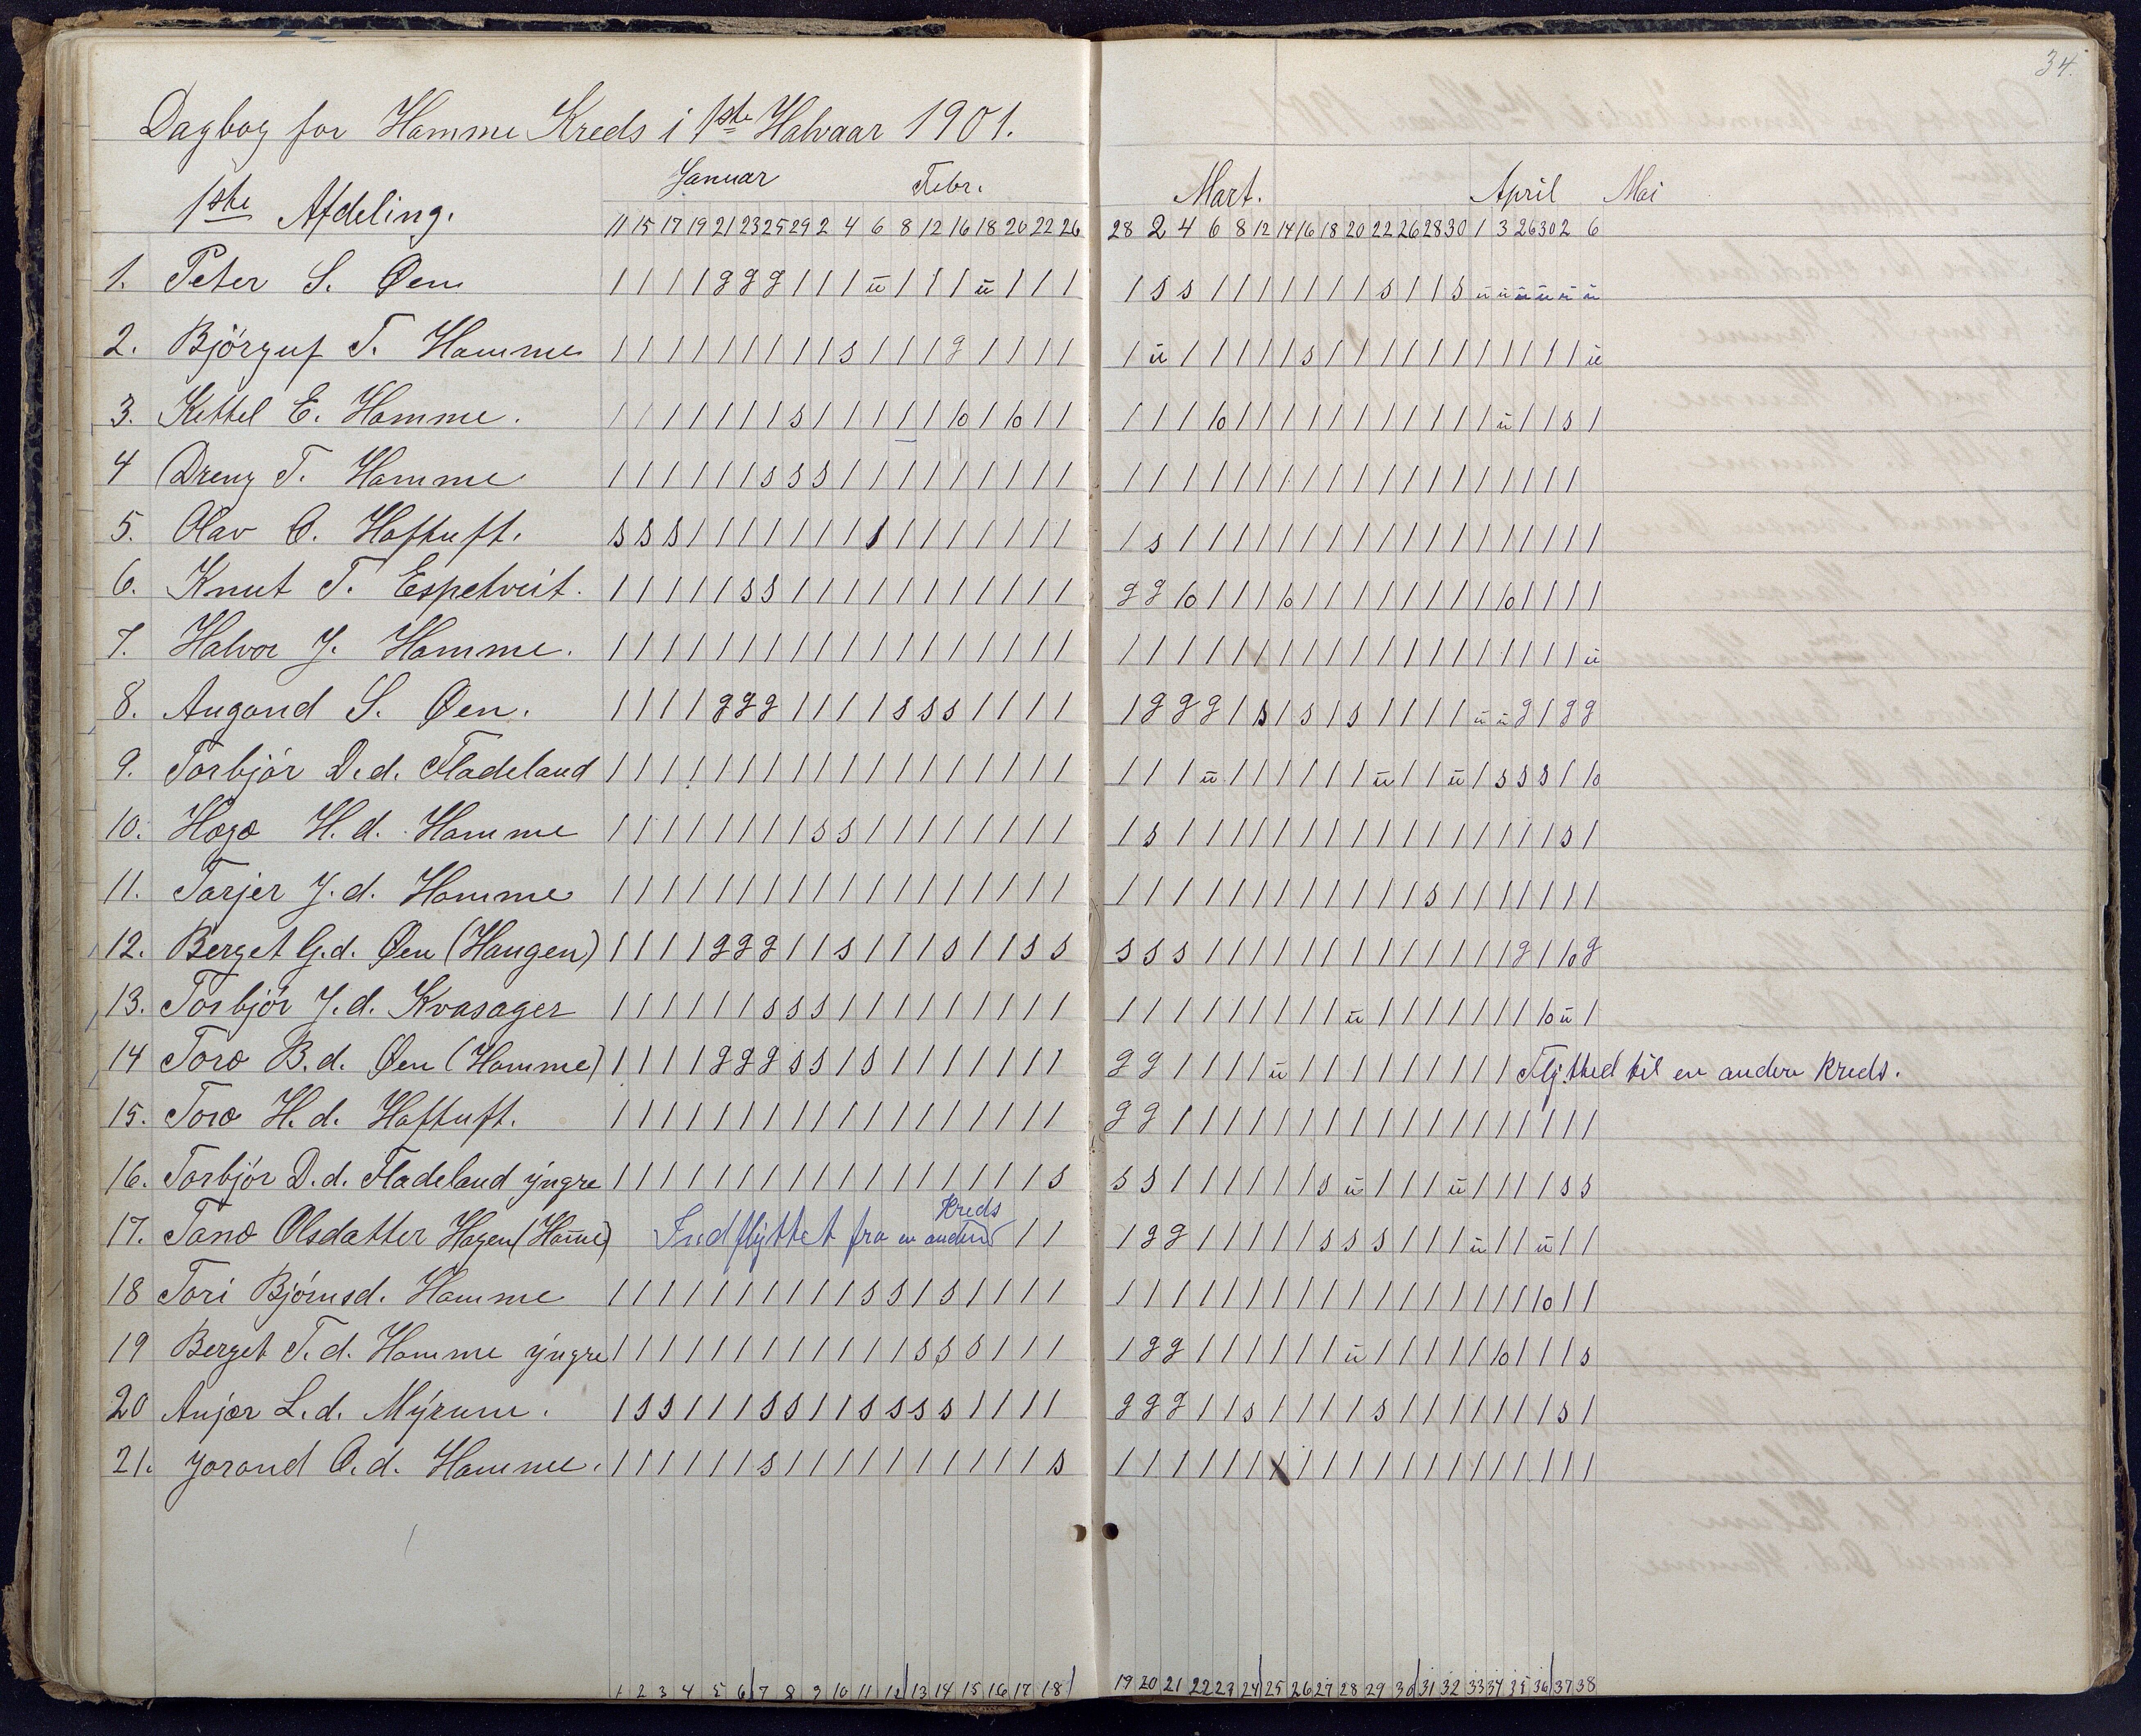 34.
Dagbog for Homme Kreds i 1ste Halvaar 1901.
Januar Febr. Mart. April Mai
1ste Afdeling.
11 15 17 19 21 23 25 29 2 4 6 8 12 16 18 20 22 26 28 2 4 6 8 12 14 16 18 20 22 26 28 30 1 3 26 30 2 6
1. Peter S. Øen / / / / g g g / / / ü / / / ü / / / / s s / / / / / / / s / / s ü ü ü ü ü ü
2. Bjórguf T. Homme / / / / / / / / / s / / / g / / / / / ü / / / / / s / / / / / / / / / / / ü
3. Kittel E. Homme. / / / / / / / s / / / / / /o / /o / / / / / /o / / / / / / / / / / / ü / / s /
4 Dreng T. Homme / / / / / / s s s / / / / / / / / / / / / / / / / / / / / / / / / / / / /
5. Olav O. Haftuft. s s s / / / / / / / s / / / / / / / / s / / / / / / / / / / / / / / / / / /
6. Knut T. Espetveit. / / / / / s s / / / / / / / / / / / g g /o / / / /o / / / / / / / / /o / / / /
7. Halvor J. Homme. / / / / / / / / / / / / / / / / / / / / / / / / / / / / / / / / / / / / / ü
8. Augond S. Øen. / / / / g g g / / / / s s s / / / / / g g g / s / s / s / / / / ü ü g / g g
9. Torbjór D.d. Fladeland / / / / / / / / / / / / / / / / / / / / / ü / / / / / / ü / / ü / s s s / /o
10. Hæge H.d. Homme / / / / / / / / s s / / / / / / / / / s / / / / / / / / / / / / / / / / s /
11. Tarjer J.d. Homme / / / / / / / / / / / / / / / / / / / / / / / / / / / / / / s / / / / / / /
12. Berget G.d. Øen (Haugen) / / / / g g g / / s / / / s / / s s s s s / / / / / / / / / / / / / g / /o g
13. Torbjór J.d. Kvasager / / / / / / s s s / / / / / / / / / / / / / / / / / / ü / / / / / / / /o ü /
14 Toro B.d. Øen (Homme) / / / / g g g s s / s / / / / / / / g g / / / / ü / / / / / / / / / Flytted til en anden Kreds.
15. Toro H.d. Haftuft. / / / / / / / / / / / / / / / / / / g g / / / / / / / / / / / / / / / / / /
16. Torbjór D.d. Fladeland yngre / / / / / / / / / / / / / / / / / s s s / / / / / / s ü / / / ü / / / / s s
17. Tano Olsdatter Hagen (Home) Indflyttet fra en anden Kreds / / / g g / / / / / s s s / / / ü / / ü / /
18 Tori Bjórnsd. Homme / / / / / / / / / / s s / s / / / / / / / / / / / / / / / / / / / / / /o / /
19 Berget T.d. Homme yngre / / / / / / / / / / / / s s s / / / / g g / / / / / / ü / / / / / /o / / / s
20 Anjær L.d. Myrum. / s s / / / s s / / s s s s / / / / g g g / / s / / / / s / / / / / / / s /
21. Jorond O.d. Homme. / / / / / / s / / / / / / / / / / s / / / / / / / / / / / / / / / / / / / /
1 2 3 4 5 6 7 8 9 10 11 12 13 14 15 16 17 18 19 20 21 22 23 24 25 26 27 28 29 30 31 32 33 34 35 36 37 38